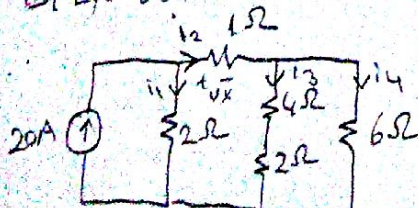 i₂ 1Ω
+ vx -
i₁ i₃ i₄
20A 2Ω 4Ω 6Ω
2Ω